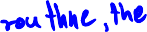 routhne, the